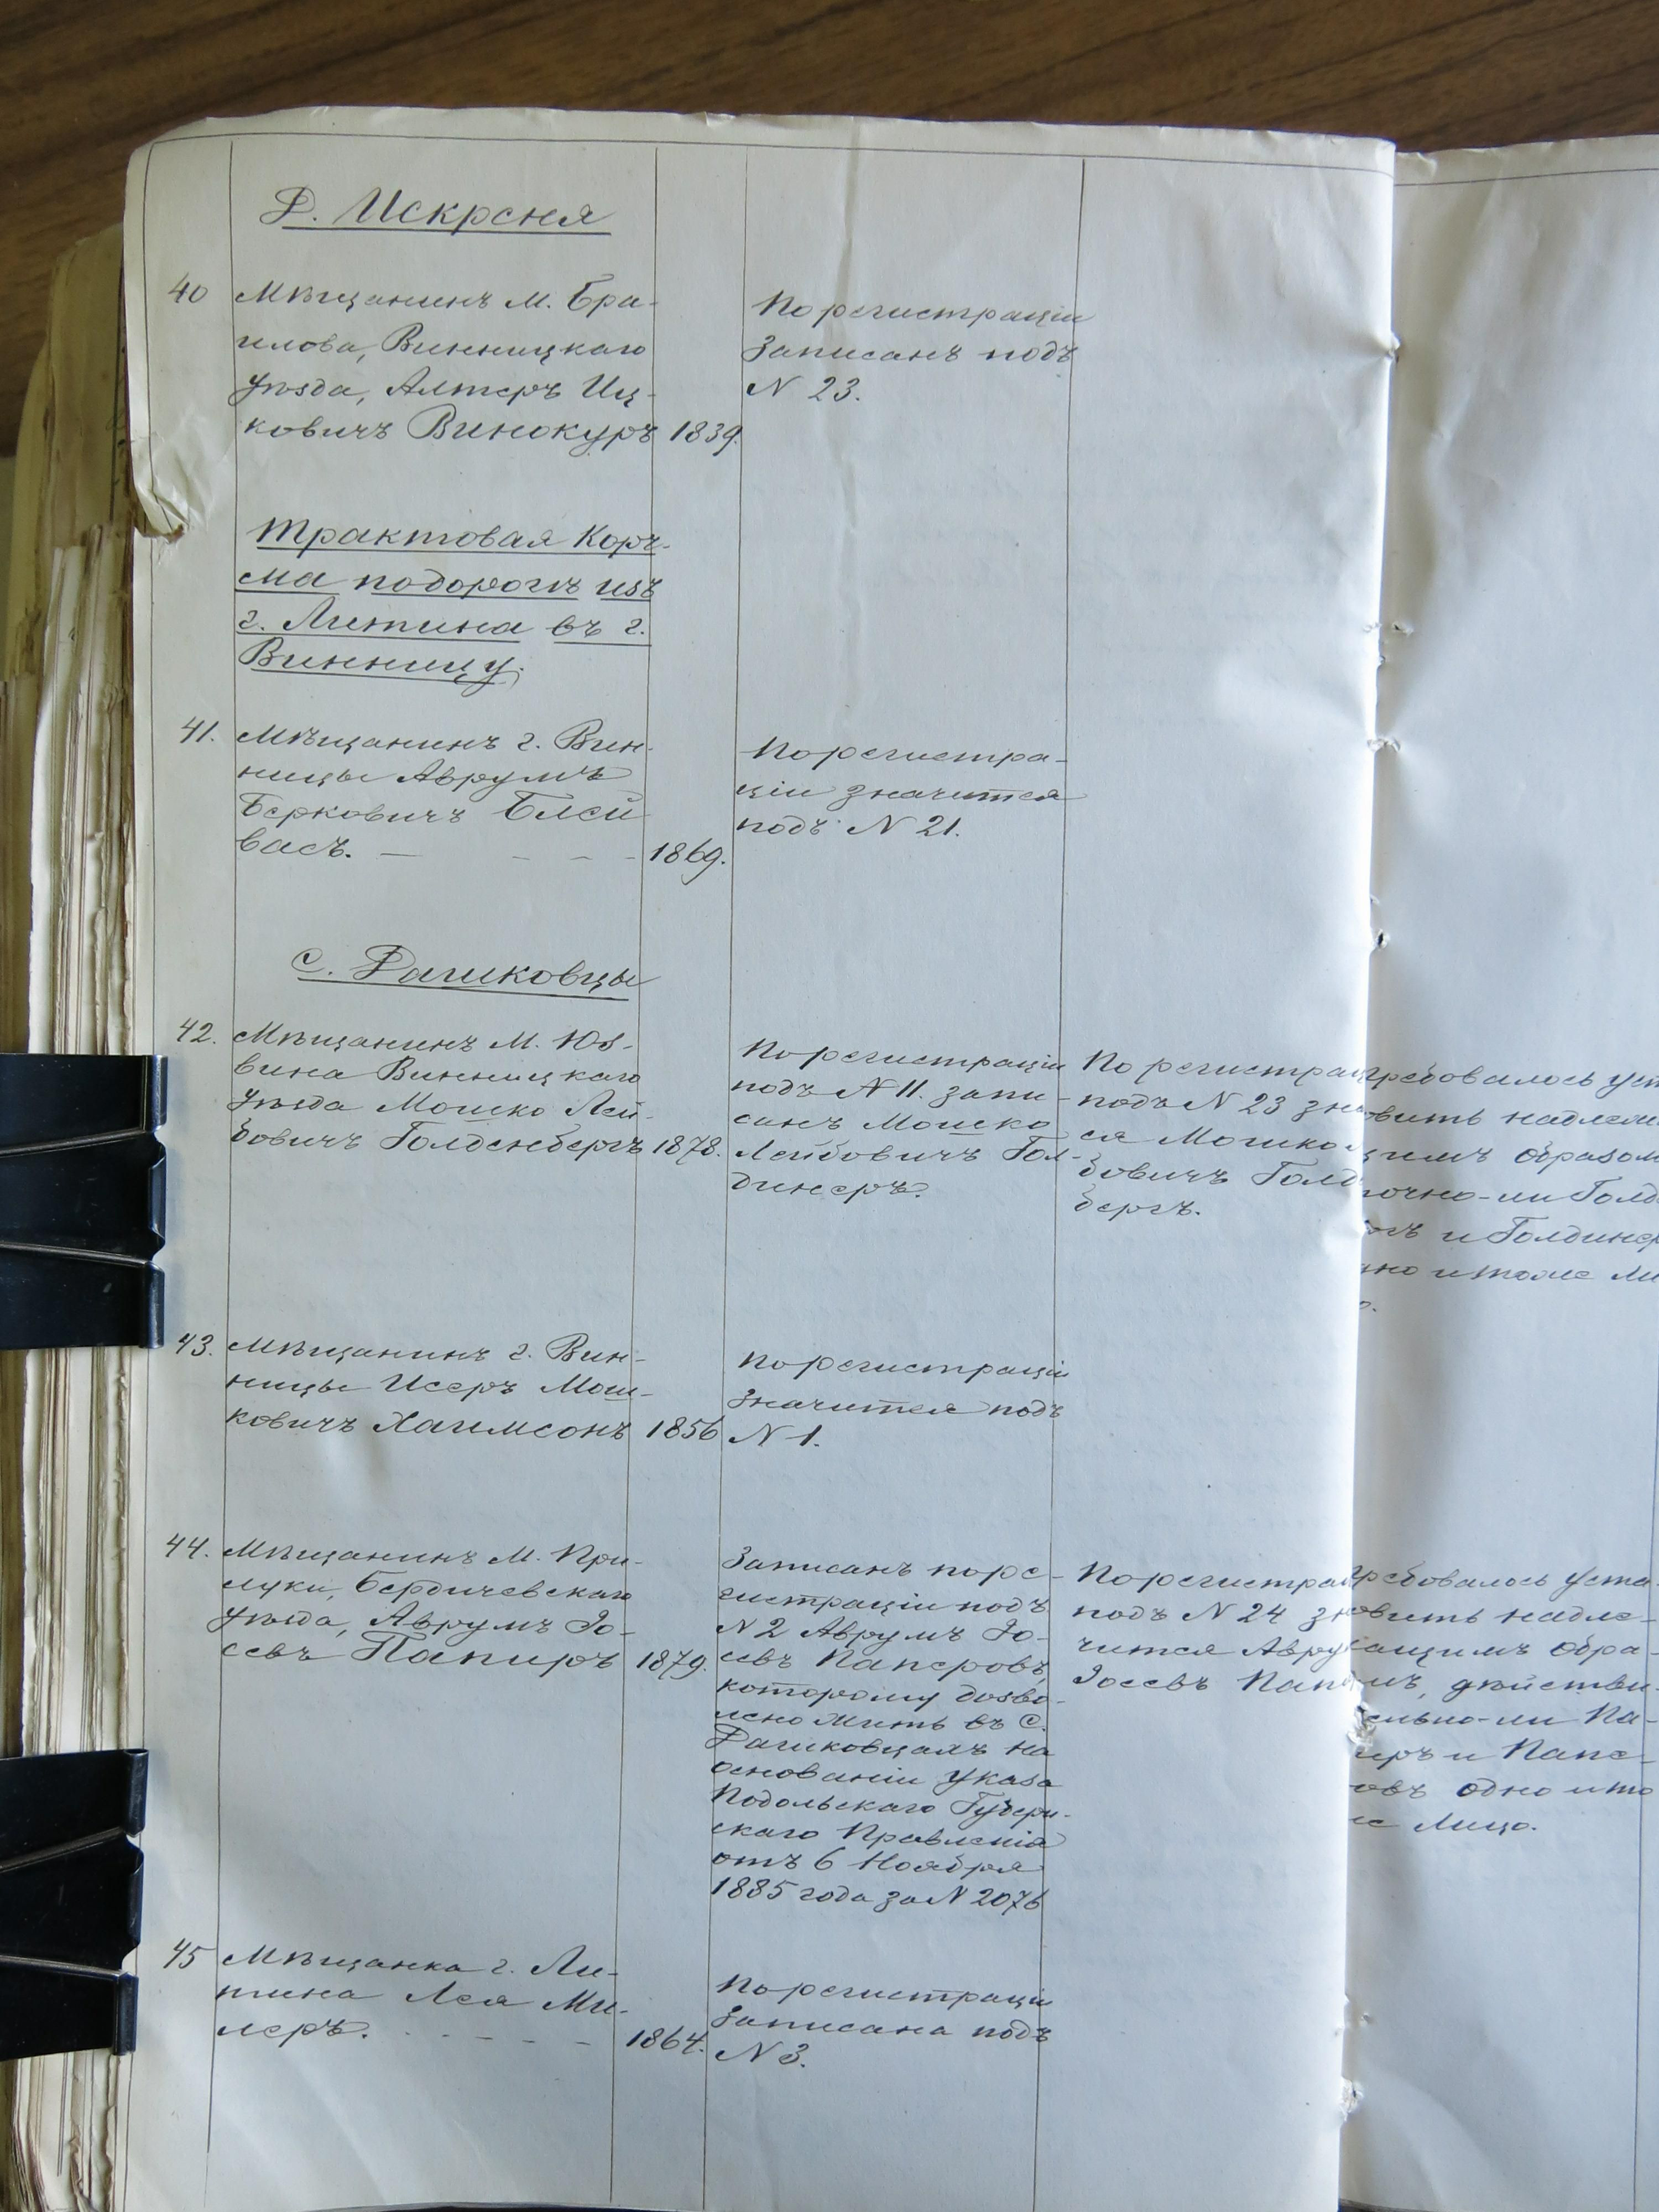 Д. Искреня
40 Мѣщанинъ м. Бра-
илова, Винницкаго
уѣзда, Алтеръ Иц-
ковичъ Винокуръ 1839.
По регистраціи
записанъ подъ
N 23.
Трактовая Корч-
ма по дорогѣ изъ
г. Литина въ г.
Винницу.
41. Мѣщанинъ г. Вин-
ницы Аврумъ
Берковичъ Блей
васъ. — - - - 1869.
По регистра-
ціи значится
подъ N 21.
С. Дашковцы
42. Мѣщанинъ м. Юз-
вина Винницкаго
уѣзда Мошко Лей-
бовичъ Голденбергъ 1878.
По регистраціи
подъ N 11. запи-
санъ Мошко
Лейбовичъ Гол-
динеръ.
По регистрац
подъ N 23 зн
ся Мошко
бовичъ Голд
бергъ.
требовалось уст
овить надлеж
щимъ образом
точно-ли Голд
ргъ и Голдинер
дно и тоже ли
о.
43. Мѣщанинъ г. Вин-
ницы Исеръ Мош-
ковичъ Хаимсонъ 1856
По регистраціи
значится подъ
N 1.
44. Мѣщанинъ м. При-
луки, Бердичевскаго
уѣзда, Аврумъ Іо-
севъ Папиръ 1879.
Записанъ по ре-
гистраціи подъ
N 2 Аврумъ Іо-
севъ Паперовъ,
которому дозво-
лено жить въ С.
Дашковцахъ на
основаніи указа
Подольскаго Губерн-
скаго Правленія
отъ 6 Ноября
1885 года за N 2076
По регистрац
подъ N 24 зн
чится Авру
Іосевъ Пап
требовалось уста-
овить надле-
ащимъ обра-
мъ, дѣйстви-
ельно-ли Па-
иръ и Папе-
овъ одно и то
же лицо.
45 Мѣщанка г. Ли-
тина Лея Ми-
леръ. - - - - 1864.
По регистраціи
записана подъ
N 3.